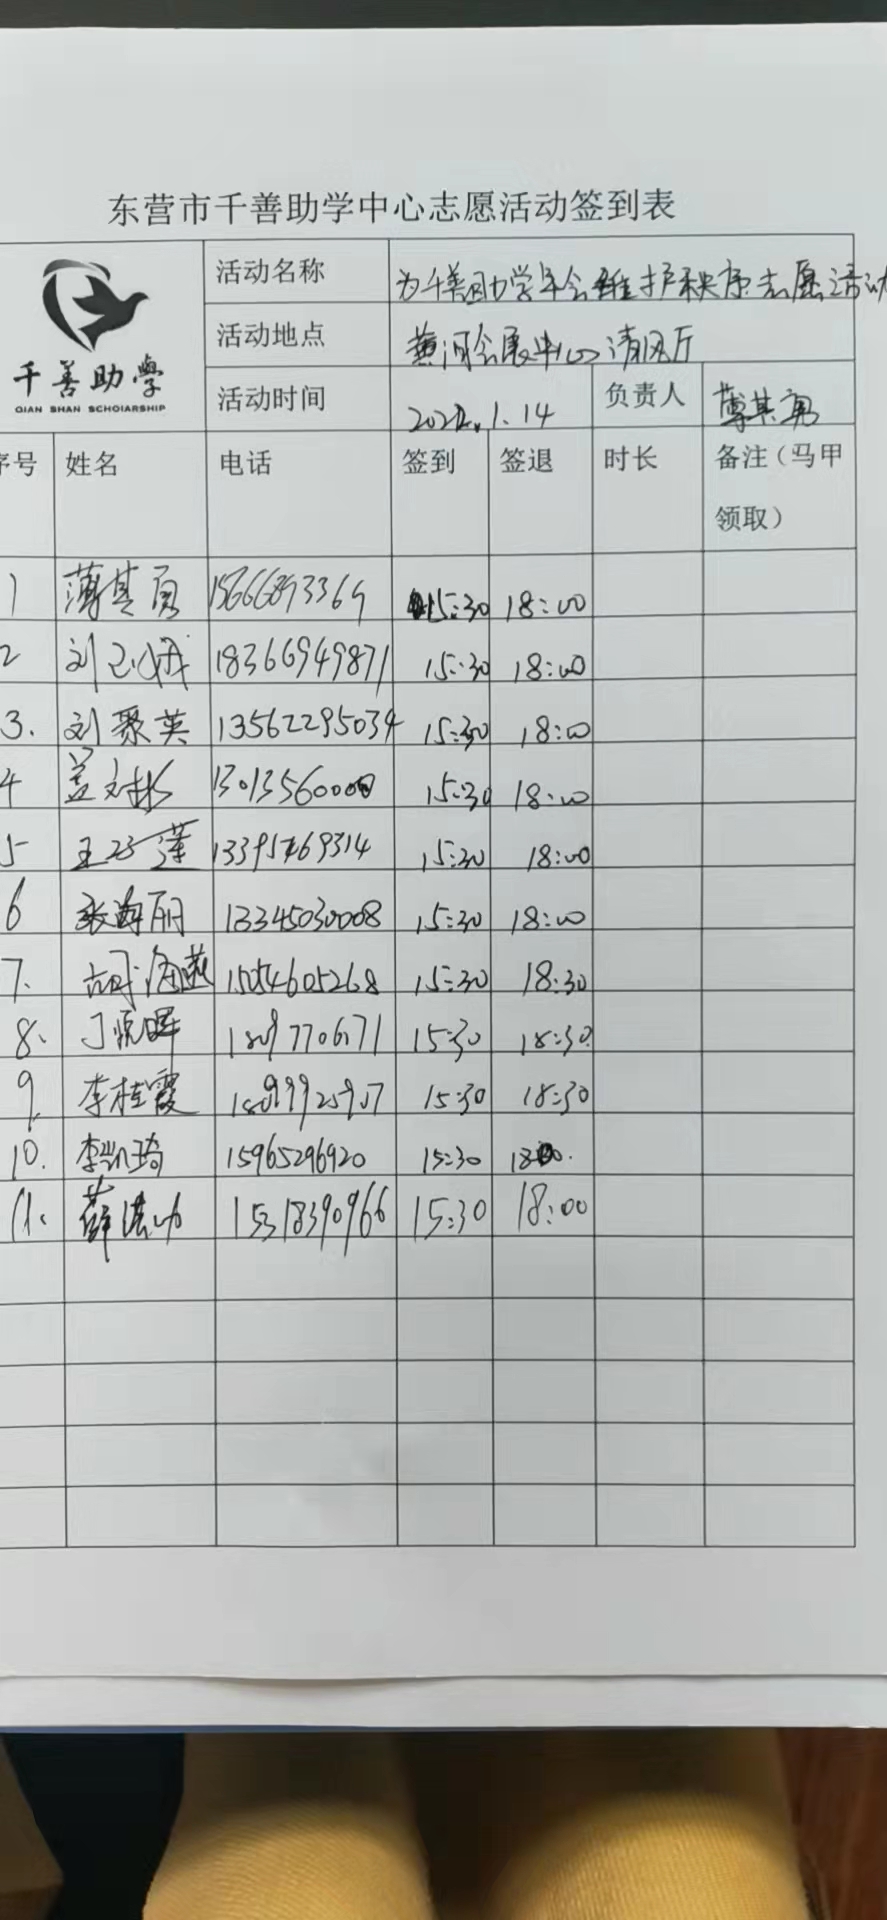 东营市千善助学中心志愿活动签到表
千善助學
QIAN SHAN SCHOIARSHIP
活动名称 为千善助学年会维护秩序志愿活动
活动地点 黄河会展中心清风厅
活动时间 2022.1.14 负责人 薄其勇
序号 姓名 电话 签到 签退 时长 备注（马甲
领取）
1 薄其勇 15:30 18:00
2 刘 18366949871 15:30 18:00
3. 刘聚英 13562295034 15:30 18:00
4 盖 15:30 18:00
5 王 15:30 18:00
6 张海丽 13345030008 15:30 18:00
7. 胡海燕 15054605268 15:30 18:30
8. 丁 15:30 18:30
9. 李桂霞 15:30 18:30
10. 李凯琦 15965296920 15:30
11. 薛 15318390966 15:30 18:00